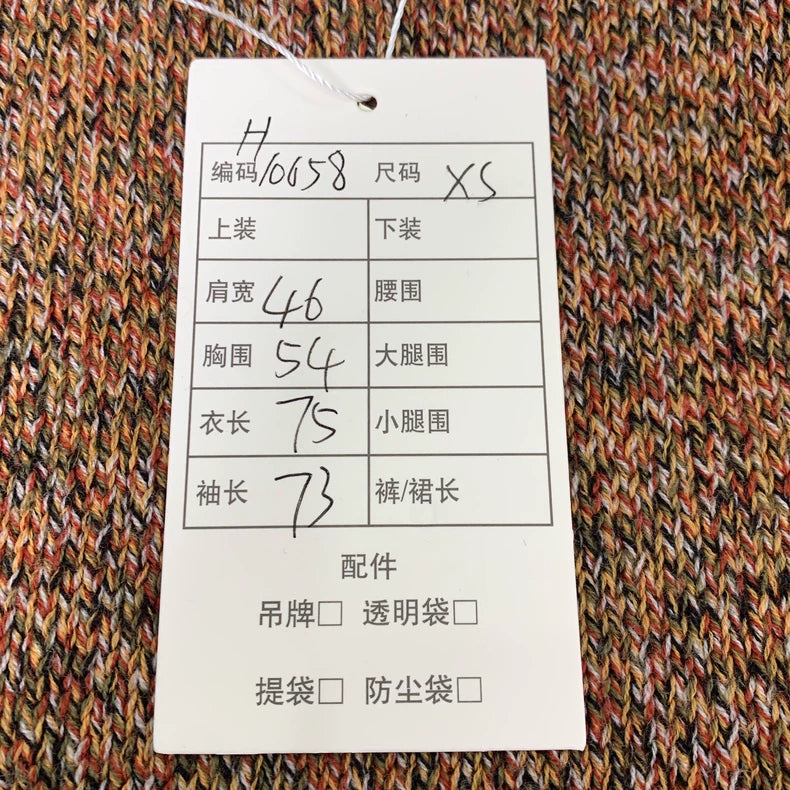 H
编码 10658 尺码 XS
上装 下装
肩宽 46 腰围
胸围 54 大腿围
衣长 75 小腿围
袖长 73 裤/裙长
配件
吊牌□ 透明袋□
提袋□ 防尘袋□